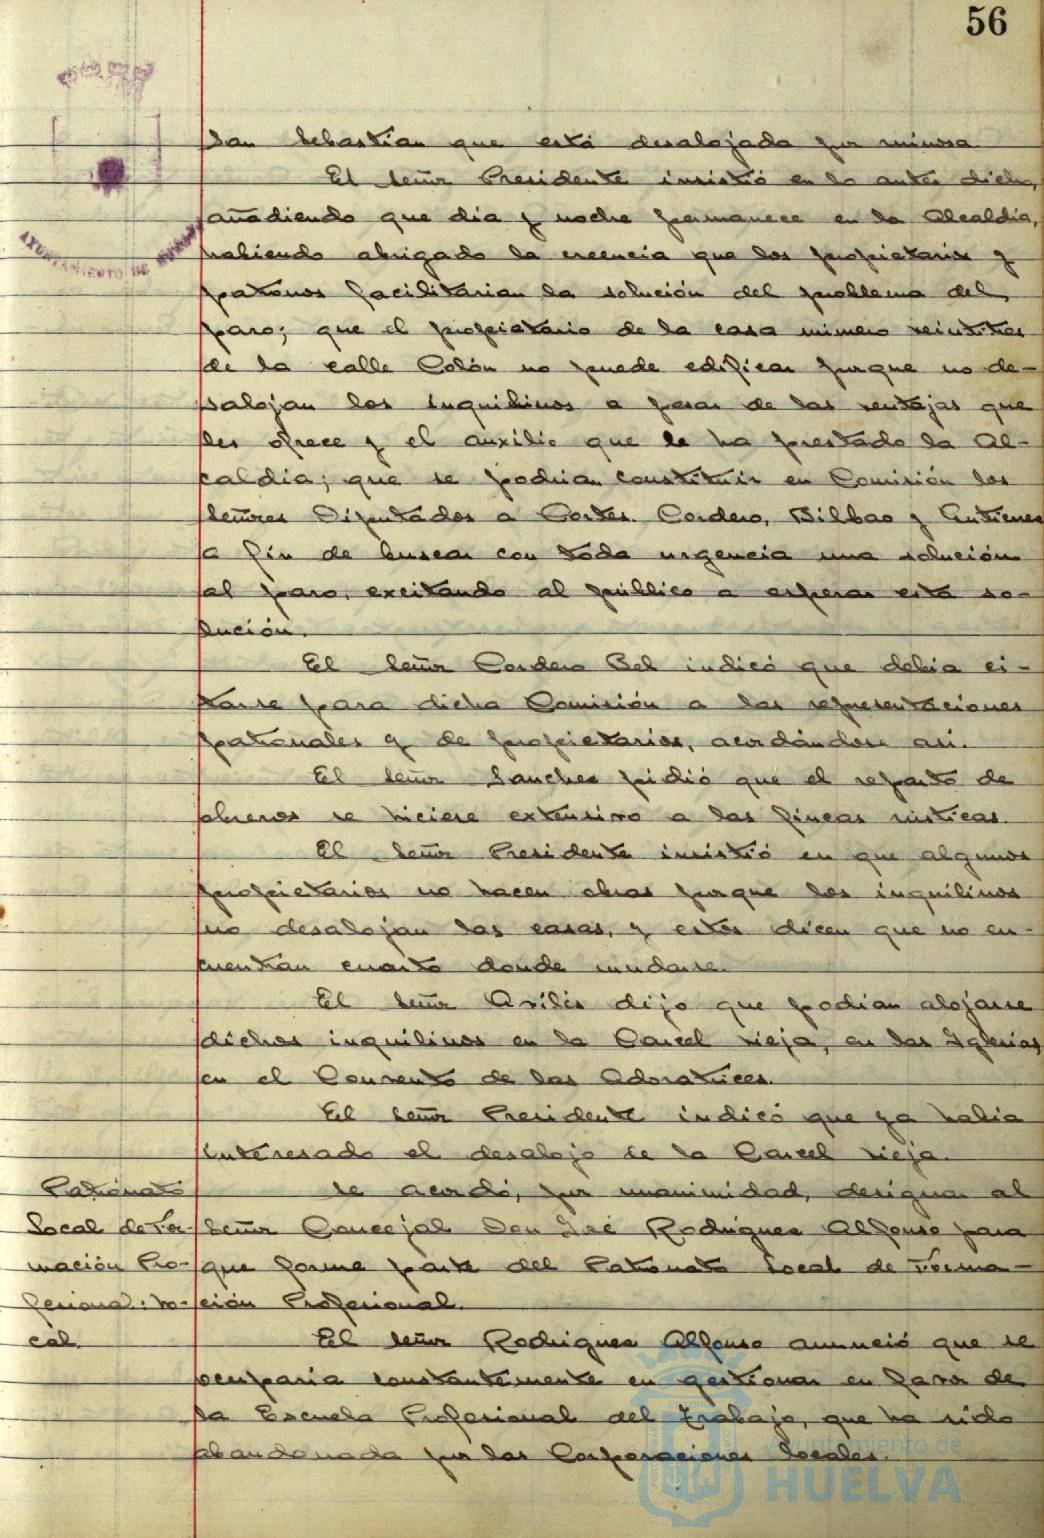 56
San Sebastián que está desalojada por ruinosa.
El Señor Presidente insistió en lo antes dicho,
añadiendo que dia y noche permanece en la Alcaldía,
habiendo abrigado la creencia que los propietarios y
patronos facilitarian la solución del problema del
paro; que el propietario de la casa número veintitres
de la calle Colón no puede edificar porque no de-
salojan los inquilinos a pesar de las ventajas que
les ofrece y el auxilio que le ha prestado la Al-
caldia; que se podrian constituir en Comisión los
Señores Diputados a Cortes. Cordero, Bilbao y Gutierrez
a fin de buscar con toda urgencia una solución
al paro, excitando al público a esperar esta so-
lución.
El Señor Cordero Bel indicó que debia ci-
tarse para dicha Comisión a las representaciones
patronales y de propietarios, acordándose asi.
El Señor Sanchez pidió que el reparto de
obreros se hiciese extensivo a las fincas rústicas.
El Señor Presidente insistió en que algunos
propietarios no hacen obras porque los inquilinos
no desalojan las casas, y estos dicen que no en-
cuentran cuarto donde mudarse.
El Señor Avilés dijo que podian alojarse
dichos inquilinos en la Carcel vieja, en las Iglesias,
en el Convento de las Adoratrices.
El Señor Presidente indicó que ya habia
interesado el desalojo de la Carcel vieja.
Patronato
Local de For-
mación Pro-
fesional: Vo-
cal.
Se acordó, por unanimidad, designar al
Señor Concejal Don José Rodriguez Alfonso para
que forme parte del Patronato Local de Forma-
ción Profesional.
El Señor Rodriguez Alfonso anunció que se
ocuparia constantemente en gestionar en favor de
la Escuela Profesional del Trabajo, que ha sido
abandonada por las Corporaciones locales.
AYUNTAMIENTO DE HUELVA
Ayuntamiento de
HUELVA